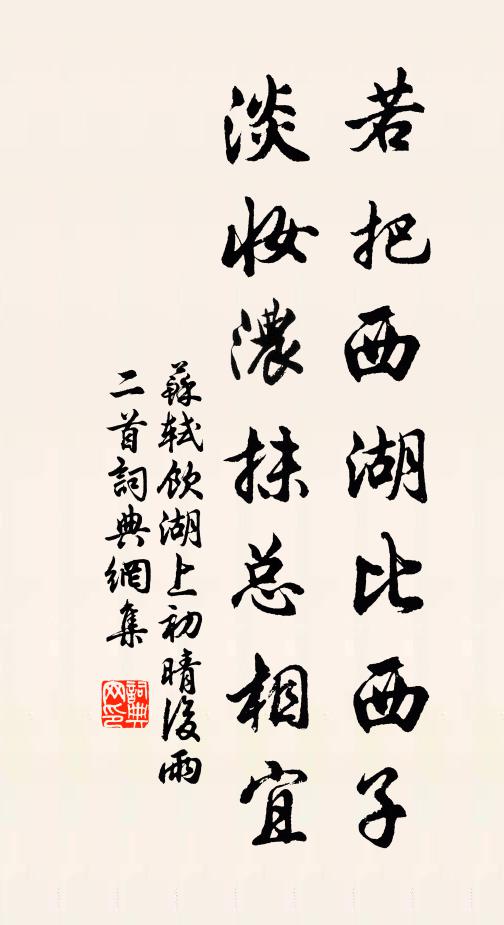 若把西湖比西子
淡妆濃抹总相宜
蘇軾飲湖上初晴後雨
二首詞典網集
詞典
网印